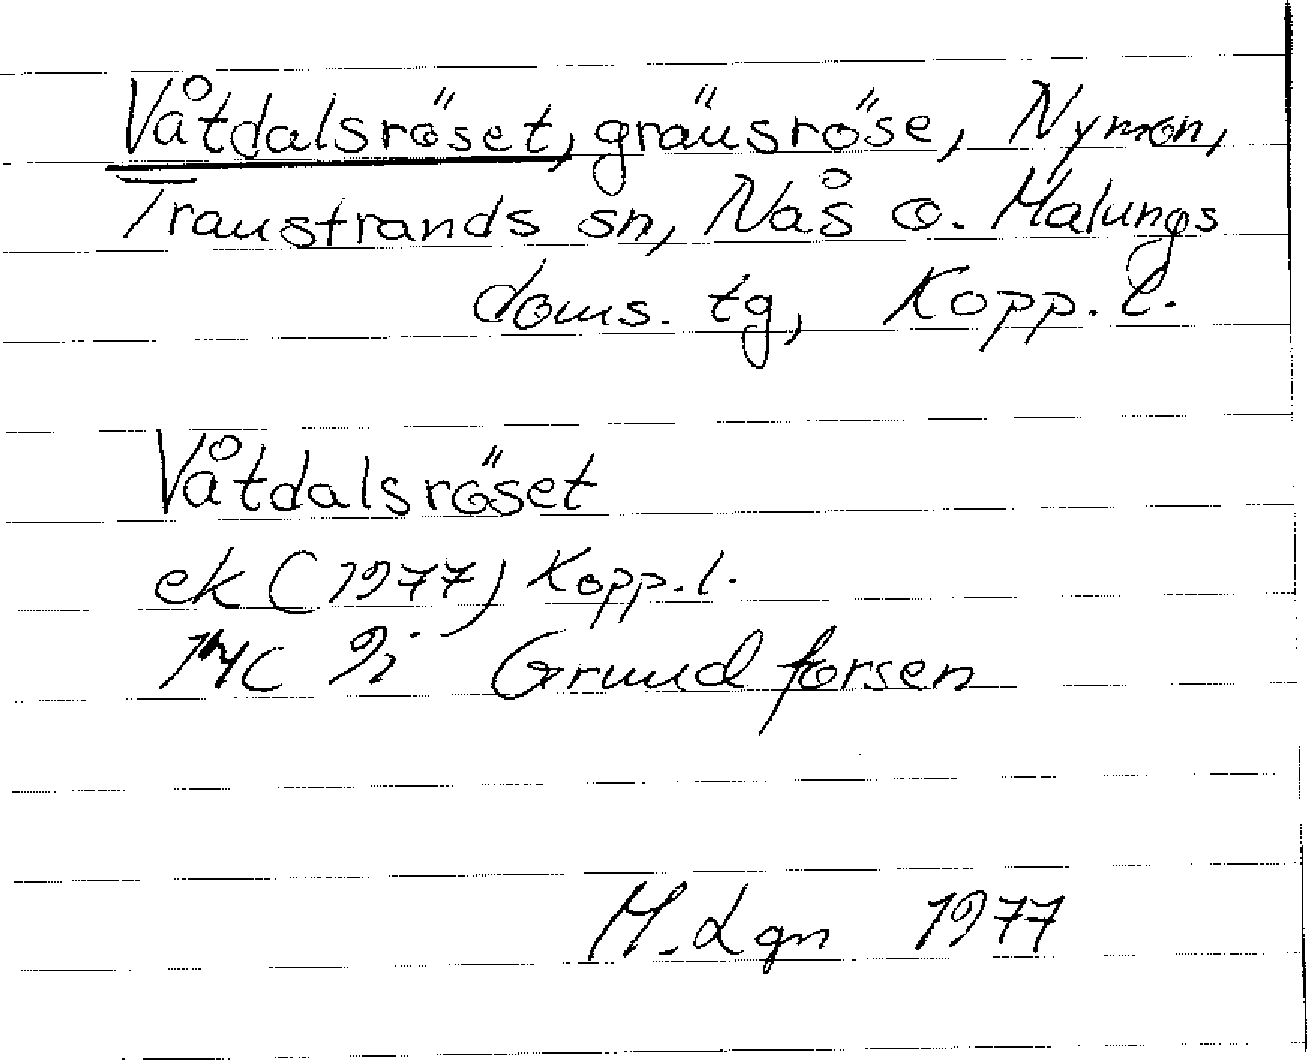 Våtdalsröset, gränsröse, Nymon,
Transtrands sn, Nås o. Malungs
doms. tg, Kopp. l.
Våtdalsröset
ek (1977) Kopp. l.
14C 9i Grundforsen
M. Lgn 1977